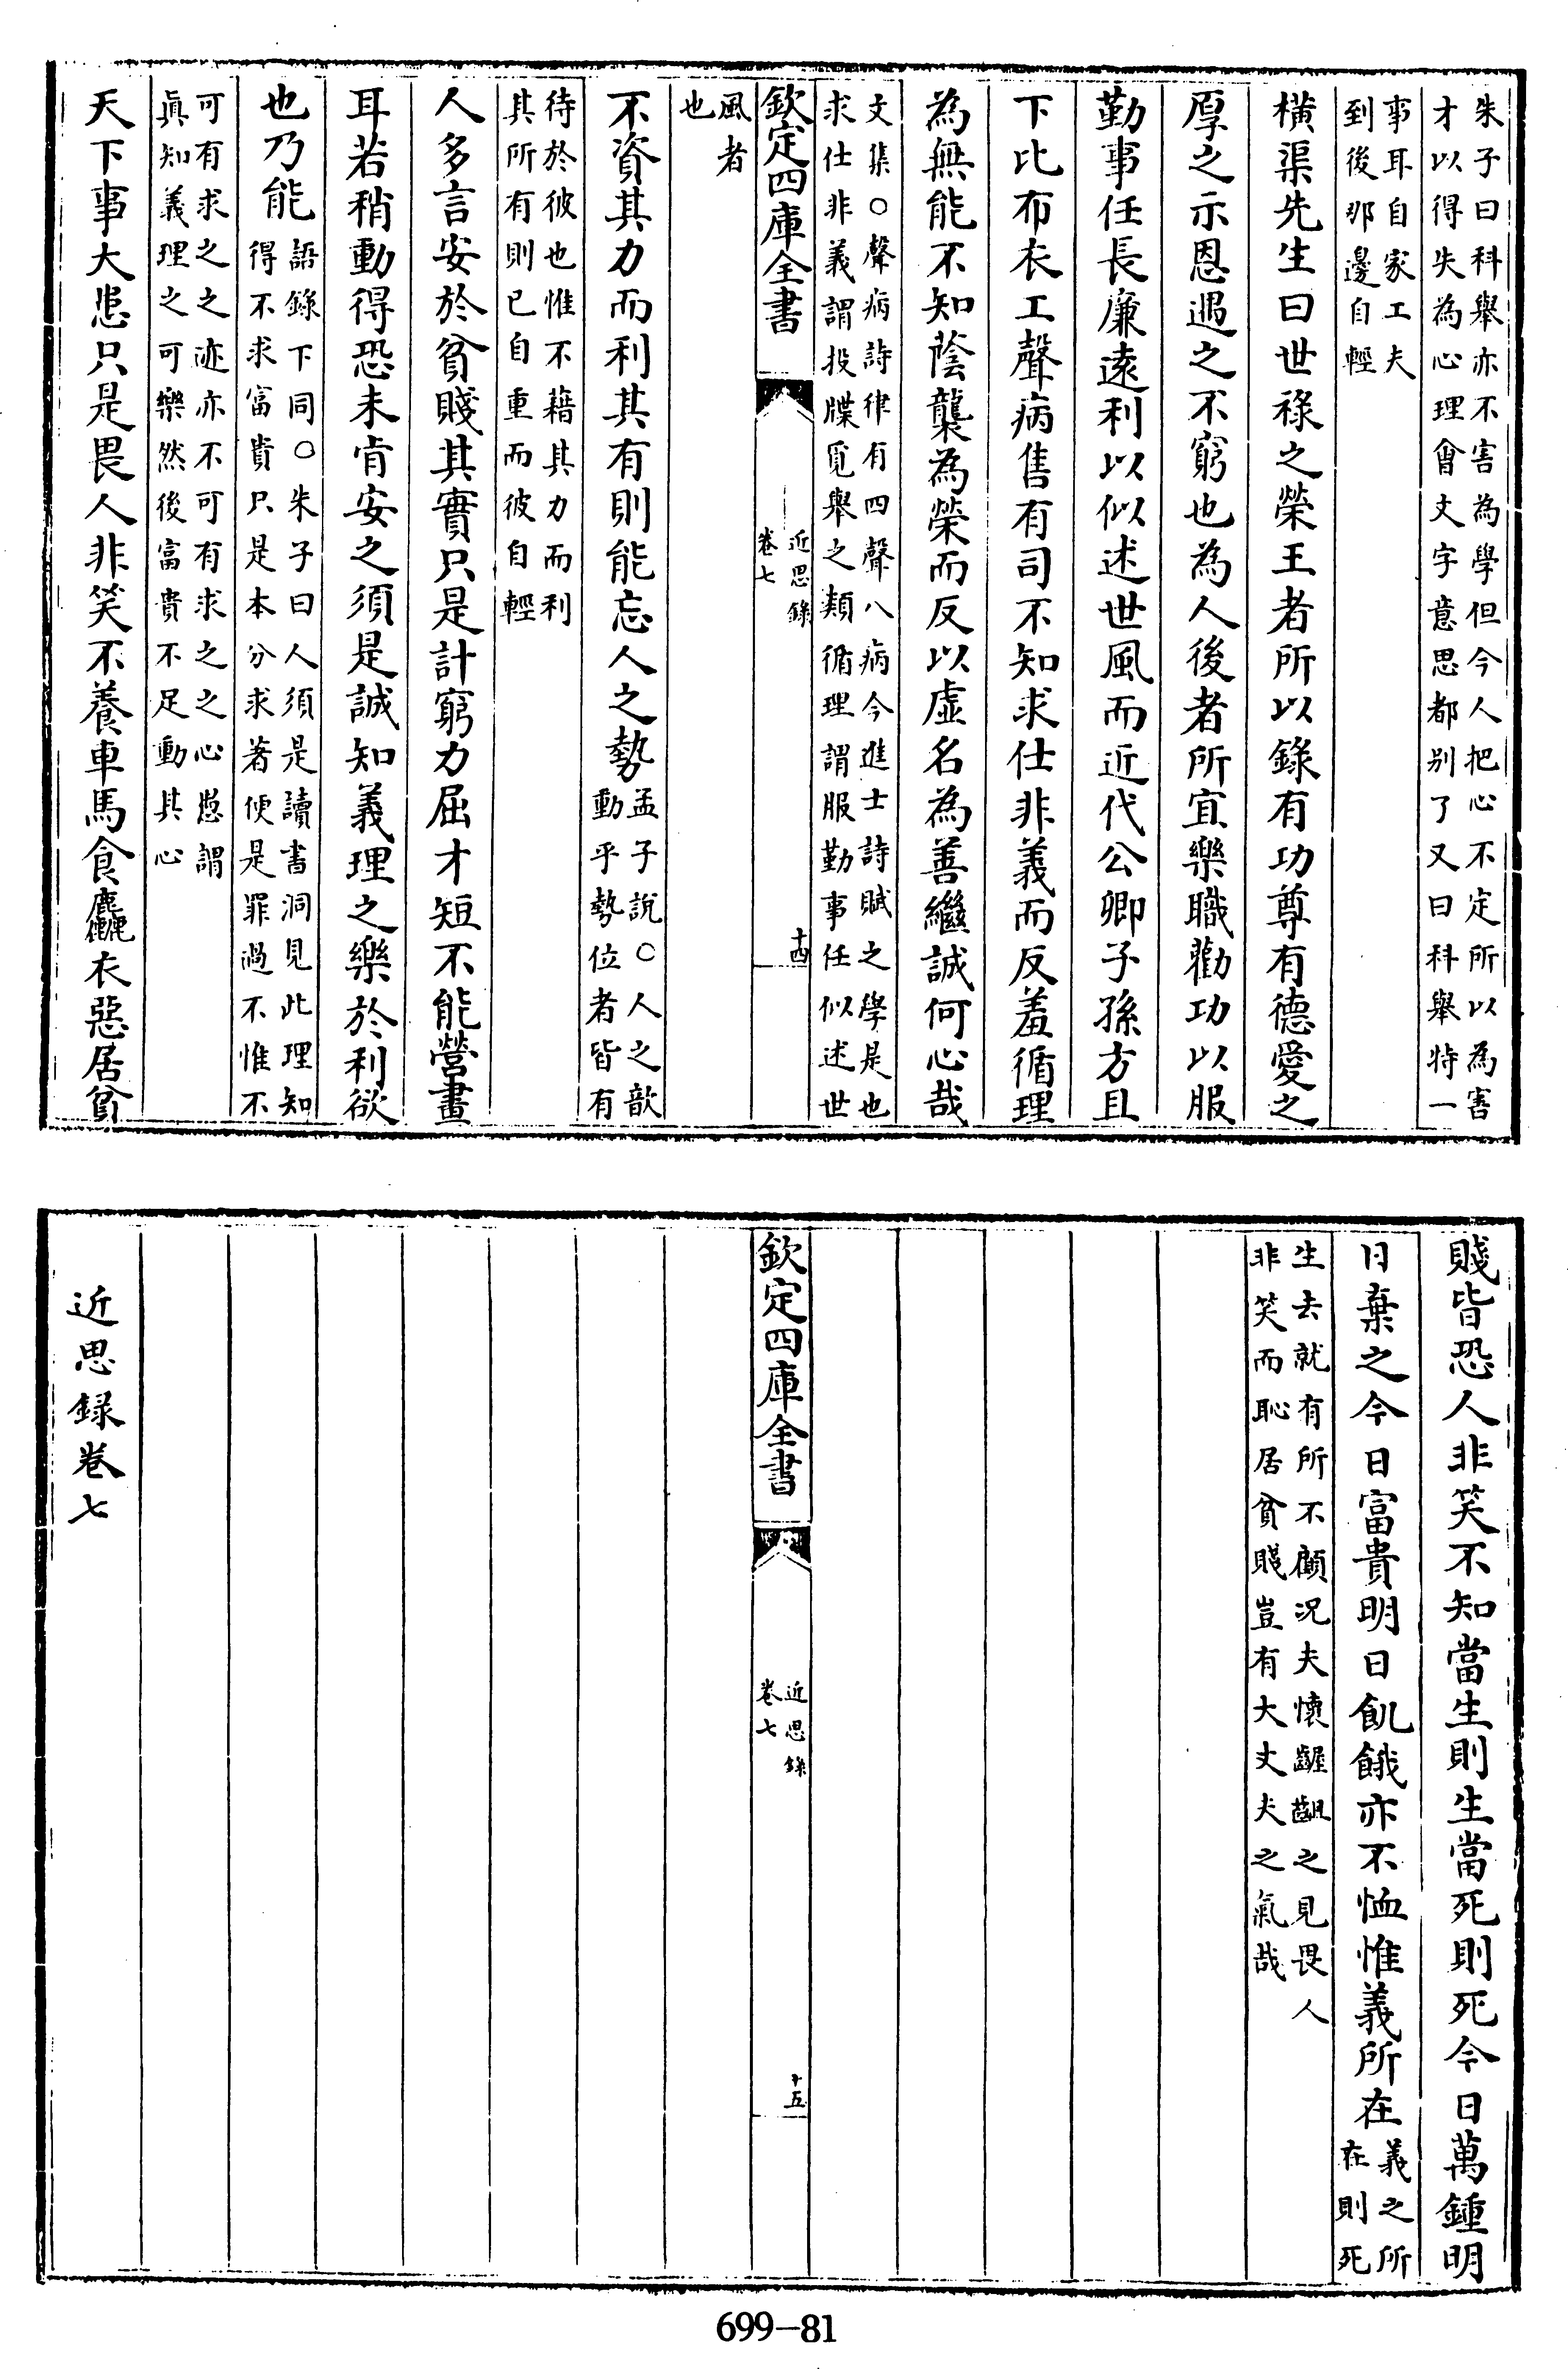 朱子曰科舉亦不害為學但今人把心不定所以為害
才以得失為心理會文字意思都别了又曰科舉特一
事耳自家工夫
到後那邊自輕
橫渠先生曰世祿之榮王者所以錄有功尊有德愛之
厚之示恩遇之不窮也為人後者所宜樂職勸功以服
勤事任長廉遠利以似述世風而近代公卿子孫方且
下比布衣工聲病售有司不知求仕非義而反羞循理
為無能不知蔭襲為榮而反以虛名為善繼誠何心哉
文集○聲病詩律有四聲八病今進士詩賦之學是也
求仕非義謂投牒覓舉之類循理謂服勤事任似述世
欽定四庫全書
近思錄
卷七
十四
風者
也
不資其力而利其有則能忘人之勢孟子說○人之歆
動乎勢位者皆有
待於彼也惟不藉其力而利
其所有則已自重而彼自輕
人多言安於貧賤其實只是計窮力屈才短不能營畫
耳若稍動得恐未肯安之須是誠知義理之樂於利欲
也乃能語錄下同○朱子曰人須是讀書洞見此理知
得不求富貴只是本分求著便是罪過不惟不
可有求之之迹亦不可有求之之心愚謂
眞知義理之可樂然後富貴不足動其心
天下事大患只是畏人非笑不養車馬食麤衣惡居貧
賤皆恐人非笑不知當生則生當死則死今日萬鍾明
日棄之今日富貴明日飢餓亦不恤惟義所在義之所
在則死
生去就有所不顧况夫懷齷齪之見畏人
非笑而恥居貧賤豈有大丈夫之氣哉
欽定四庫全書
近思錄
卷七
十五
近思録卷七
699-81